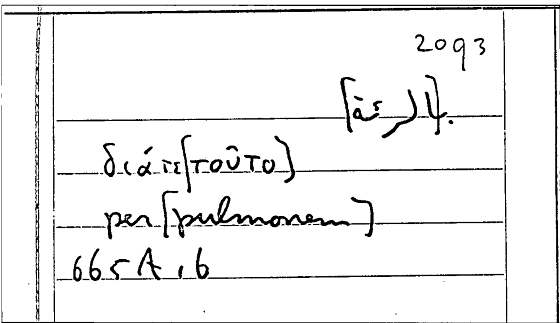 2093
διά τε [τοῦτο]
per [pulmonem]
665A,6